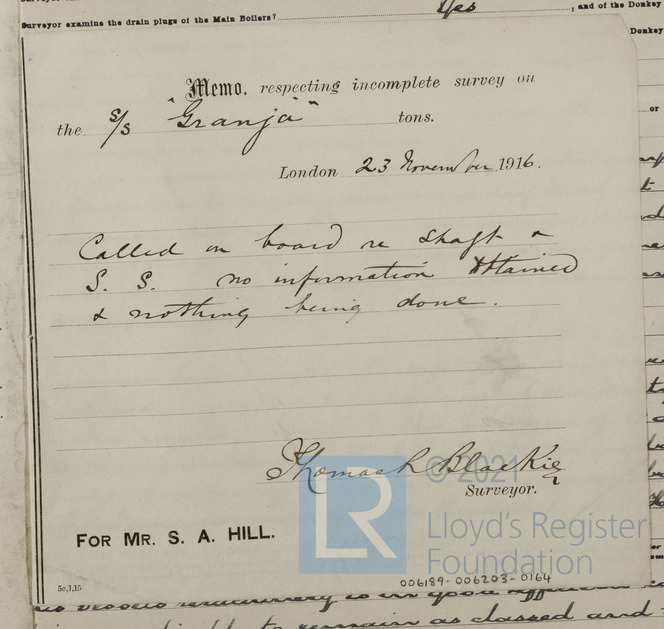 Surveyor examine the drain plugs of the Main Boilers? Yes, and of the Donkey
Donkey
or
Memo. respecting incomplete survey on
the s/s "Granja" tons.
London 23 November 1916.
Called on board re shaft &
S. S. no information obtained
& nothing being done.
Thomas R Blackie
Surveyor.
© 2021
LR
Lloyd's Register
Foundation
FOR MR. S. A. HILL.
5c,1,15
006189-006203-0164
to remain as classed and